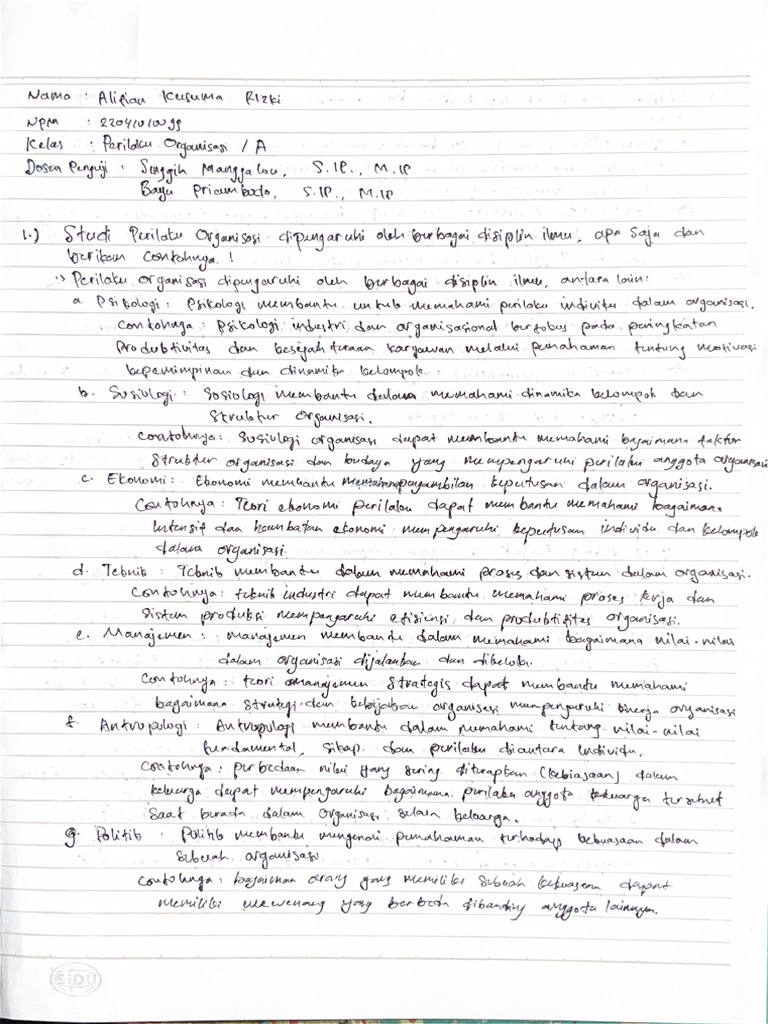 Nama : Alifian Kusuma Rizki
NPM : 22041010099
Kelas : Perilaku Organisasi / A
Dosen Penguji : Singgih Manggalou, S.IP., M.IP
Bayu Priambodo, S.IP., M.IP
1.) Studi Perilaku Organisasi dipengaruhi oleh berbagai disiplin ilmu, apa saja dan
berikan Contohnya !
:> Perilaku organisasi dipengaruhi oleh berbagai disiplin ilmu, antara lain:
a. Psikologi : Psikologi membantu untuk memahami perilaku individu dalam organisasi.
Contohnya : Psikologi industri dan organisasional berfokus pada peningkatan
Produktivitas dan kesejahteraan karyawan melalui pemahaman tentang motivasi
kepemimpinan dan dinamika kelompok.
b. Sosiologi : Sosiologi membantu dalam memahami dinamika kelompok dan
Struktur Organisasi.
Contohnya : Sosiologi organisasi dapat membantu memahami bagaimana faktor
Struktur organisasi dan budaya yang mempengaruhi perilaku anggota organisasi
c. Ekonomi : Ekonomi membantu pengambilan keputusan dalam organisasi.
Contohnya : Teori ekonomi perilaku dapat membantu memahami bagaimana
Intensif dan hambatan ekonomi mempengaruhi keputusan individu dan kelompok
dalam organisasi.
d. Teknik : Teknik membantu dalam memahami proses dan sistem dalam organisasi.
Contohnya : teknik industri dapat membantu memahami proses kerja dan
sistem produksi mempengaruhi efisiensi dan produktifitas organisasi.
e. Manajemen : manajemen membantu dalam memahami bagaimana nilai-nilai
dalam organisasi dijalankan dan dikelola.
Contohnya : teori manajemen Strategis dapat membantu memahami
bagaimana strategi dan kebijakan organisasi mempengaruhi kinerja organisasi
f. Antropologi : Antropologi membantu dalam memahami tentang nilai-nilai
fundamental, sikap dan perilaku diantara individu.
Contohnya : perbedaan nilai yang sering diterapkan (kebiasaan) dalam
keluarga dapat mempengaruhi bagaimana perilaku anggota keluarga tersebut
Saat berada dalam organisasi selain keluarga.
g. Politik : Politik membantu mengenai pemahaman terhadap kekuasaan dalam
sebuah organisasi.
Contohnya : bagaimana orang yang memiliki sebuah kekuasaan dapat
memiliki wewenang yang berbeda dibanding anggota lainnya.
SiDU